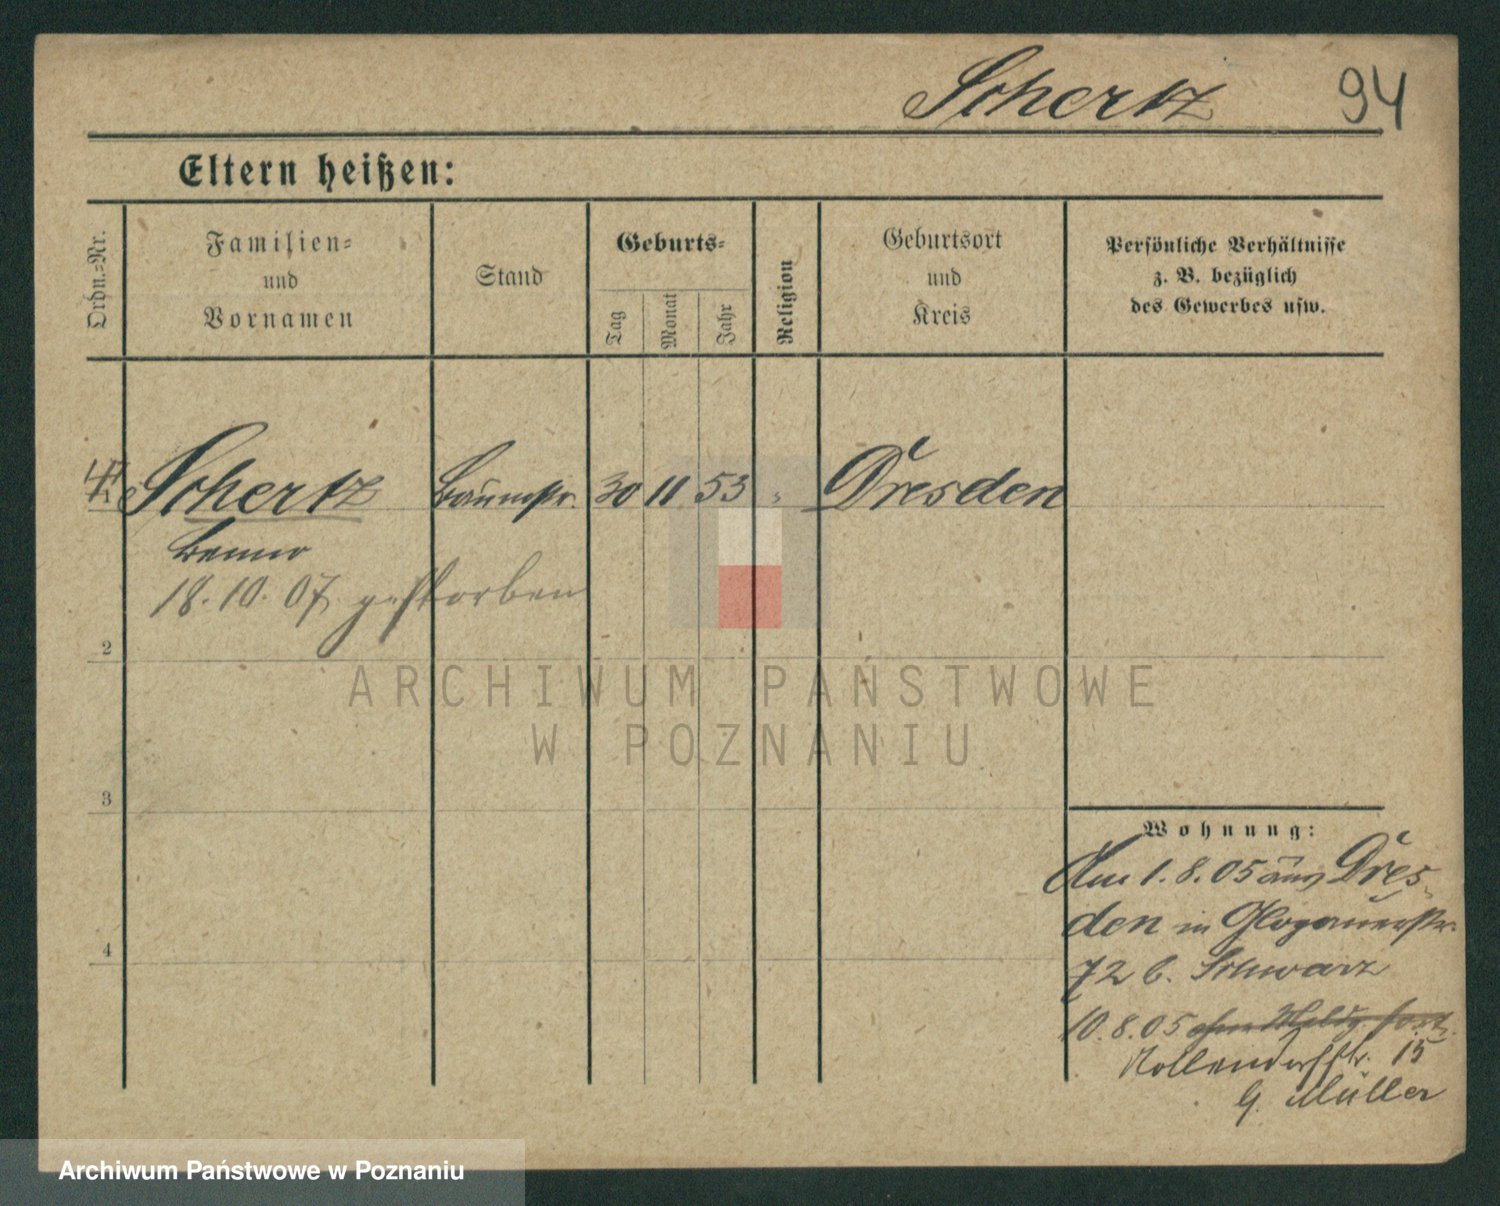 Schertz 94
Eltern heißen:
Ordn.=Nr.
Familien=
und
Vornamen
Stand
Geburts=
Tag
Monat
Jahr
Religion
Geburtsort
und
Kreis
Persönliche Verhältnisse
z. B. bezüglich
des Gewerbes usw.
Schertz Baumstr. 30 11 53 " Dresden
Benno
18.10.07 gestorben
2
3
4
Wohnung:
Am 1.8.05 aus Dres-
den in Glogauerstr.
72 b. Schwarz
10.8.05 ohne Meldg. fort.
Nollendorfstr. 15
G. Müller
ARCHIWUM PAŃSTWOWE
W POZNANIU
Archiwum Państwowe w Poznaniu